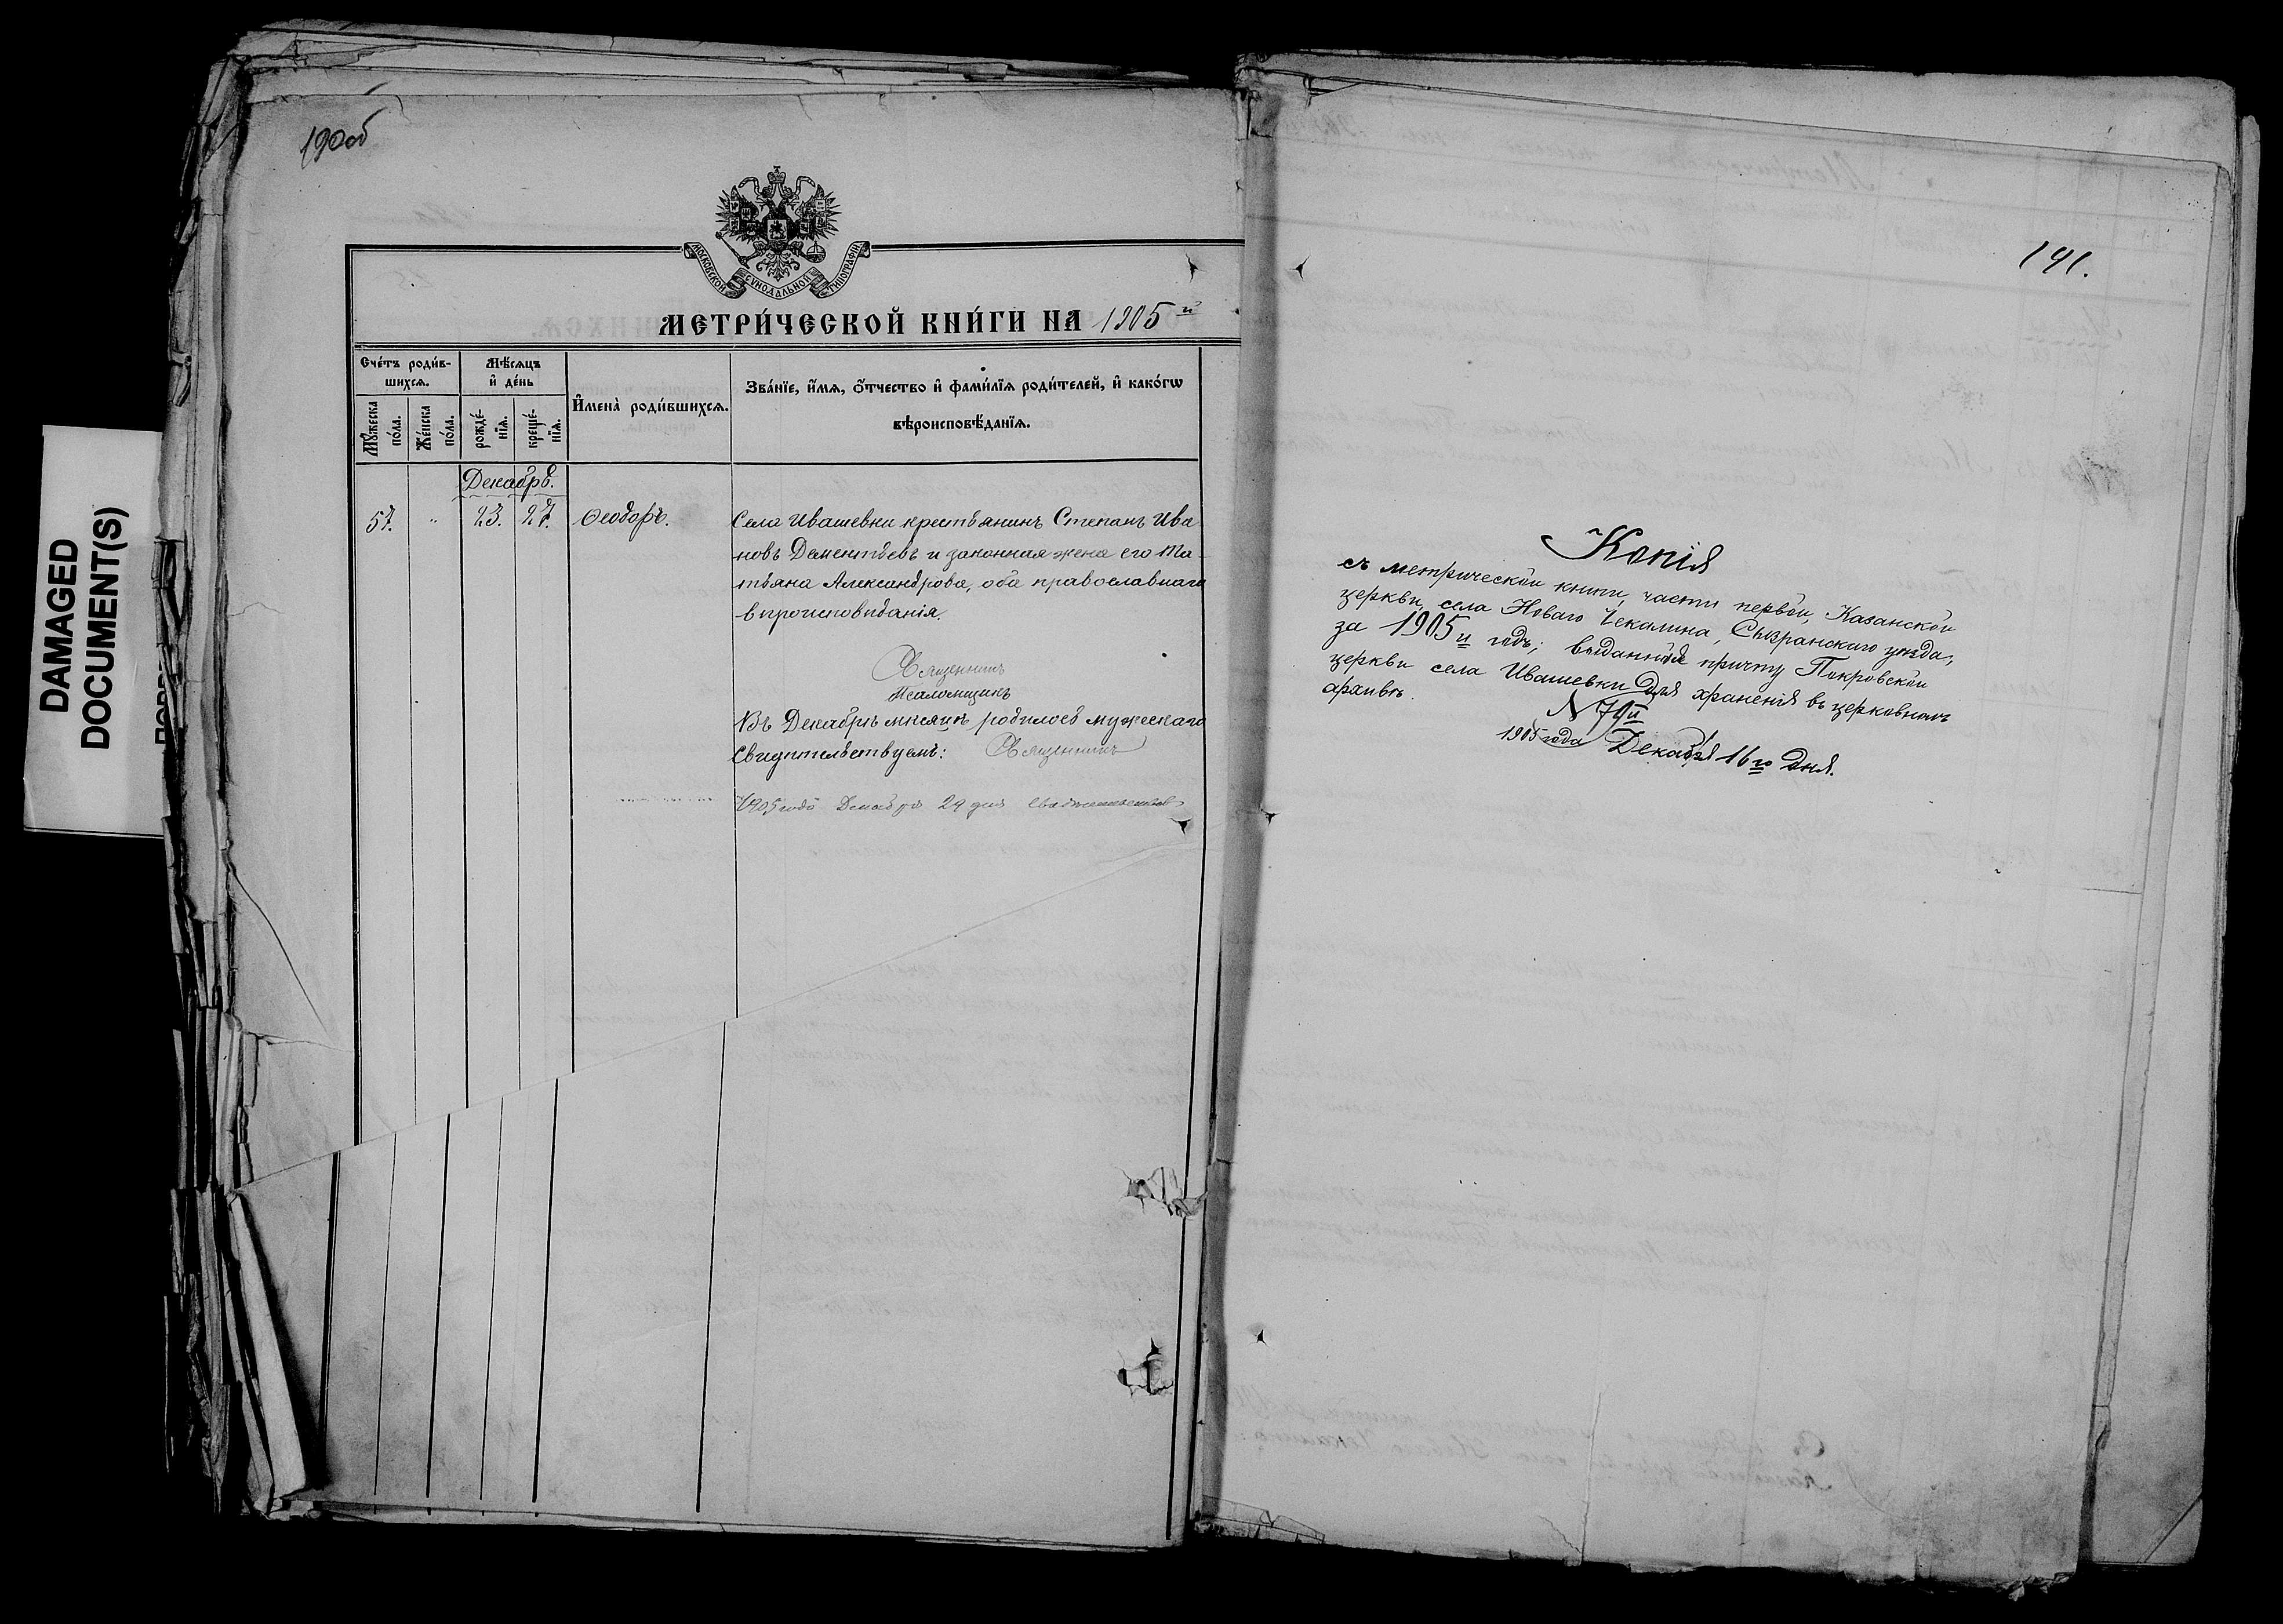 DAMAGED
DOCUMENT(S)
190об
МОСКОВСКОЙ СѴНОДАЛЬНОЙ ТИПОГРАФІИ
МЕТРИ́ЧЕСКОЙ КНИ́ГИ НА 1905й
Сче́тъ роди́в-
шихсѧ.
Мѣ́сѧцъ
и҆ де́нь
И҆мена̀ роди́вшихсѧ.
Зва́нїе, и҆́мѧ, ѻ҆́тчество и҆ фами́лїѧ роди́телей, и҆ како́гѡ
вѣроисповѣ́данїѧ.
Мꙋ́жеска
по́ла.
Же́нска
по́ла.
рожде́-
нїѧ.
креще́-
нїѧ.
Декабрь.
57. " 23. 27. Ѳеодоръ. Села Ивашевки крестьянинъ Степанъ Ива
новъ Дементьевъ и законная жена его Та
тьяна Александрова, оба православнаго
вѣроисповѣданія.
Священникъ
Псаломщикъ
Въ Декабрѣ мѣсяцѣ родилось мужескаго
Свидѣтельствуемъ: Священникъ
1905 года Декабря 29 дня
191.
Копія
съ метрической книги, части первой, Казанской
церкви села Новаго Чекалина, Сызранскаго уѣзда,
за 1905й годъ; выданная причту Покровской
церкви села Ивашевки для храненія въ церковномъ
архивѣ.
1905 года Декабря 16го дня.